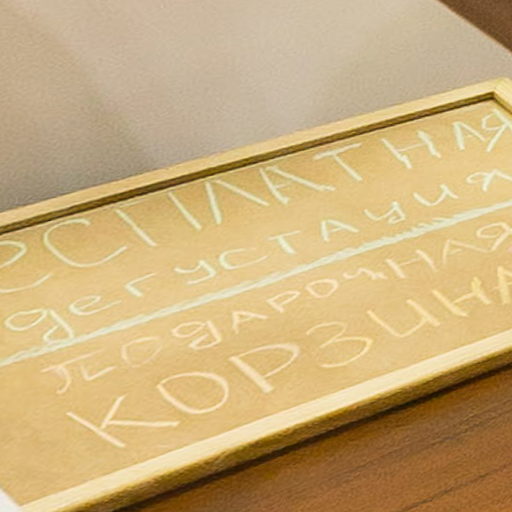 есплатная
дегустация
подарочная
корзина